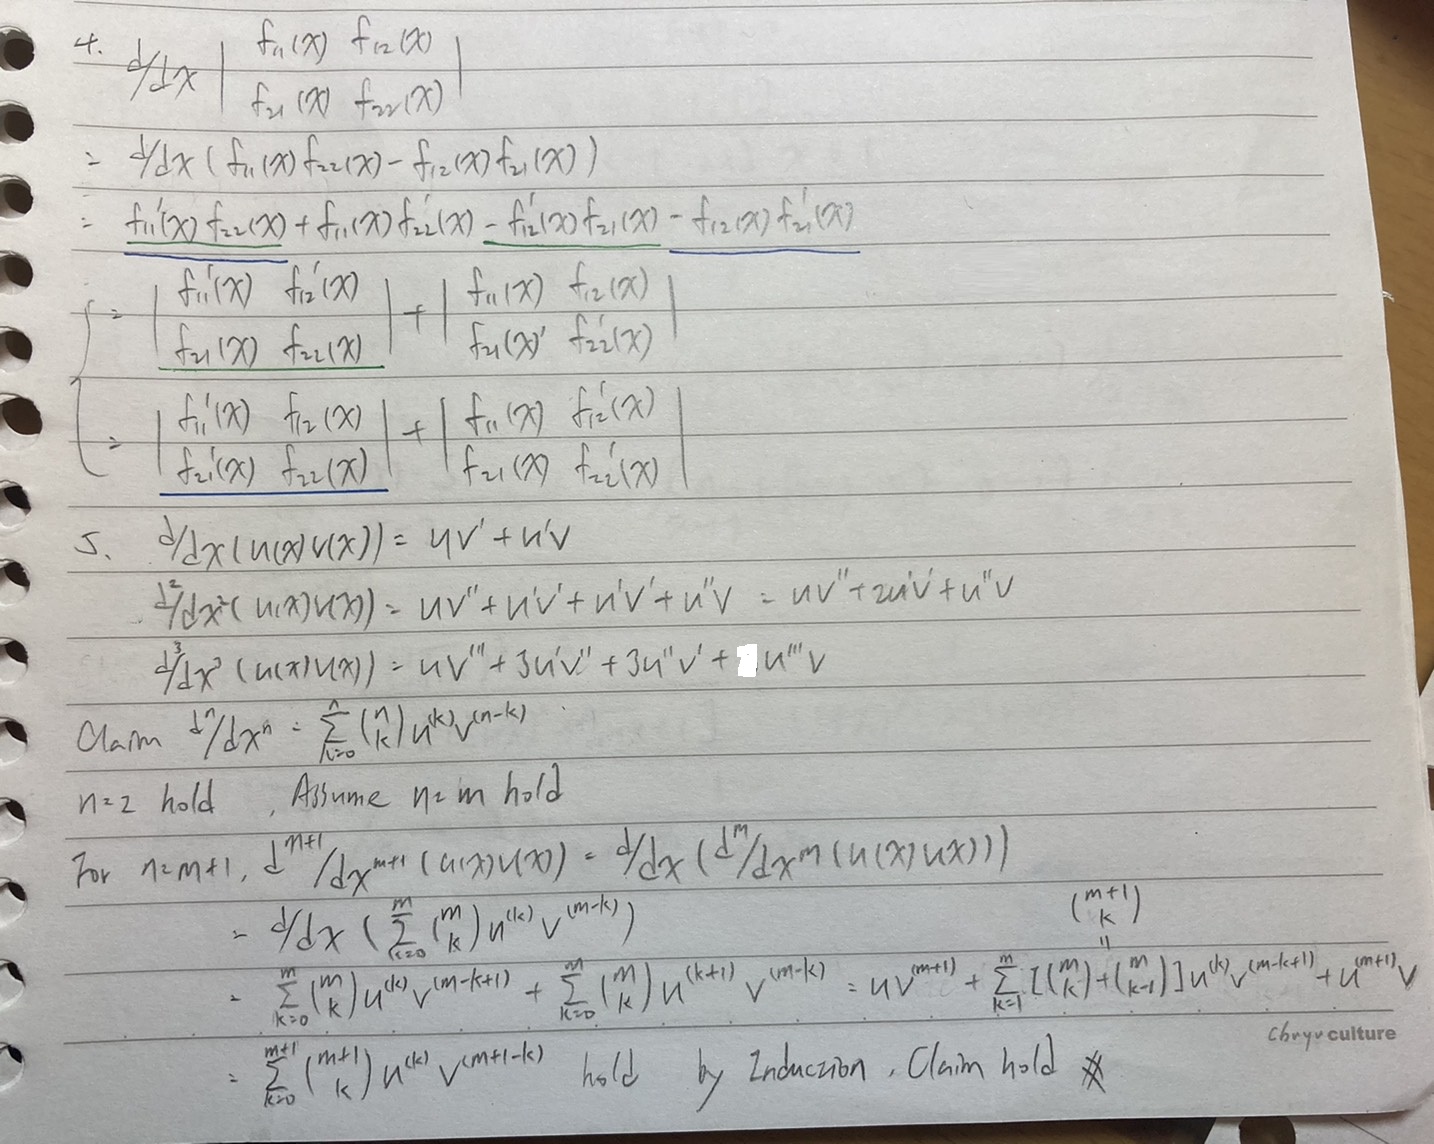 4. d/dx | f₁₁(x) f₁₂(x) |
| f₂₁(x) f₂₂(x) |
= d/dx (f₁₁(x)f₂₂(x) - f₁₂(x)f₂₁(x))
= f₁₁'(x)f₂₂(x) + f₁₁(x)f₂₂'(x) - f₁₂'(x)f₂₁(x) - f₁₂(x)f₂₁'(x)
= | f₁₁'(x) f₁₂'(x) | + | f₁₁(x) f₁₂(x) |
| f₂₁(x) f₂₂(x) | | f₂₁(x)' f₂₂'(x) |
= | f₁₁'(x) f₁₂(x) | + | f₁₁(x) f₁₂'(x) |
| f₂₁'(x) f₂₂(x) | | f₂₁(x) f₂₂'(x) |
5. d/dx (u(x)v(x)) = uv' + u'v
d²/dx² (u(x)v(x)) = uv'' + u'v' + u'v' + u''v = uv'' + 2u'v' + u''v
d³/dx³ (u(x)v(x)) = uv''' + 3u'v'' + 3u''v' + u'''v
Claim dⁿ/dxⁿ = Σ_{k=0}^{n} (n k) u^(k) v^(n-k)
n=2 hold , Assume n=m hold
For n=m+1, d^{m+1}/dx^{m+1} (u(x)v(x)) = d/dx (d^m/dx^m (u(x)v(x)))
= d/dx (Σ_{k=0}^{m} (m k) u^(k) v^(m-k))
(m+1 k)
"
= Σ_{k=0}^{m} (m k) u^(k) v^(m-k+1) + Σ_{k=0}^{m} (m k) u^(k+1) v^(m-k) = uv^(m+1) + Σ_{k=1}^{m} [(m k)+(m k-1)] u^(k) v^(m-k+1) + u^(m+1) v
= Σ_{k=0}^{m+1} (m+1 k) u^(k) v^(m+1-k) hold by Induction , Claim hold ※
Chryvculture